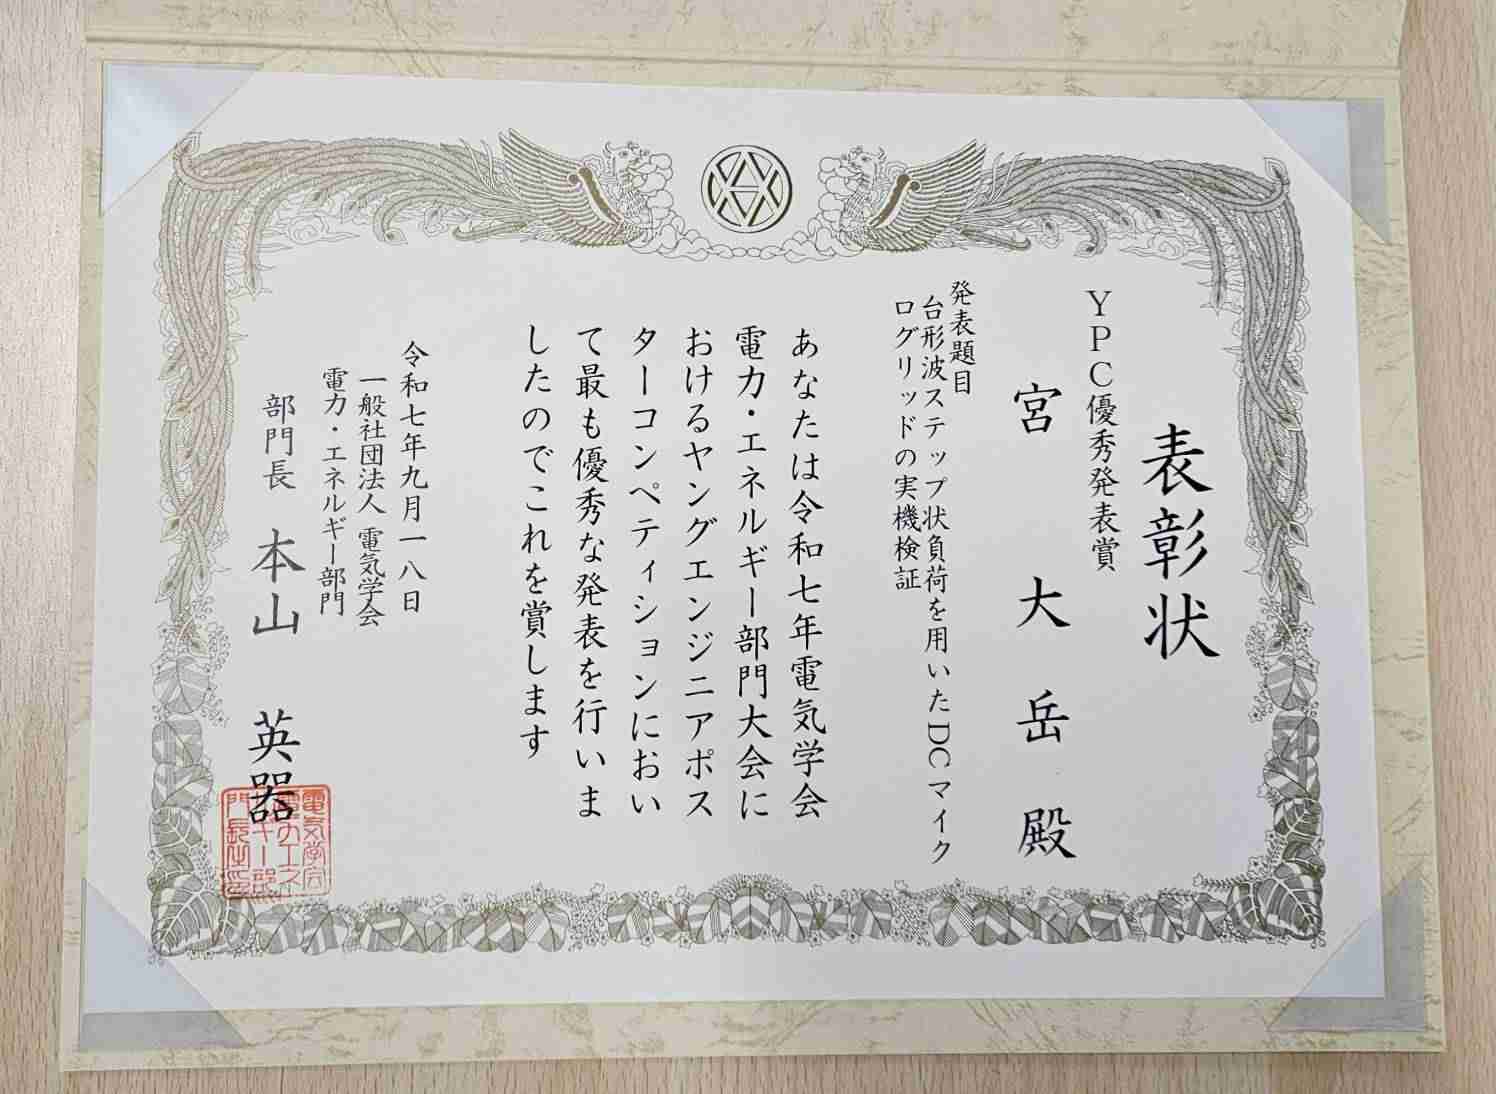 表彰状
YPC優秀発表賞
宮 大岳 殿
発表題目
台形波ステップ状負荷を用いたDCマイク
ログリッドの実機検証
あなたは令和七年電気学会
電力・エネルギー部門大会に
おけるヤングエンジニアポス
ターコンペティションにおい
て最も優秀な発表を行いま
したのでこれを賞します
令和七年九月一八日
一般社団法人 電気学会
電力・エネルギー部門
部門長 本山 英器
電気学会
電力エネ
ルギー部
門長之印